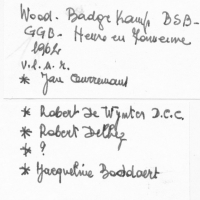 Wood. Badge Kamp BSB-
GGB- Heure en Famenne
1962
v.l.n.r.
* Jan Ceuremans
* Robert De Wynter D.C.C.
* Robert Delhez
* ?
* Jacqueline Boddaert